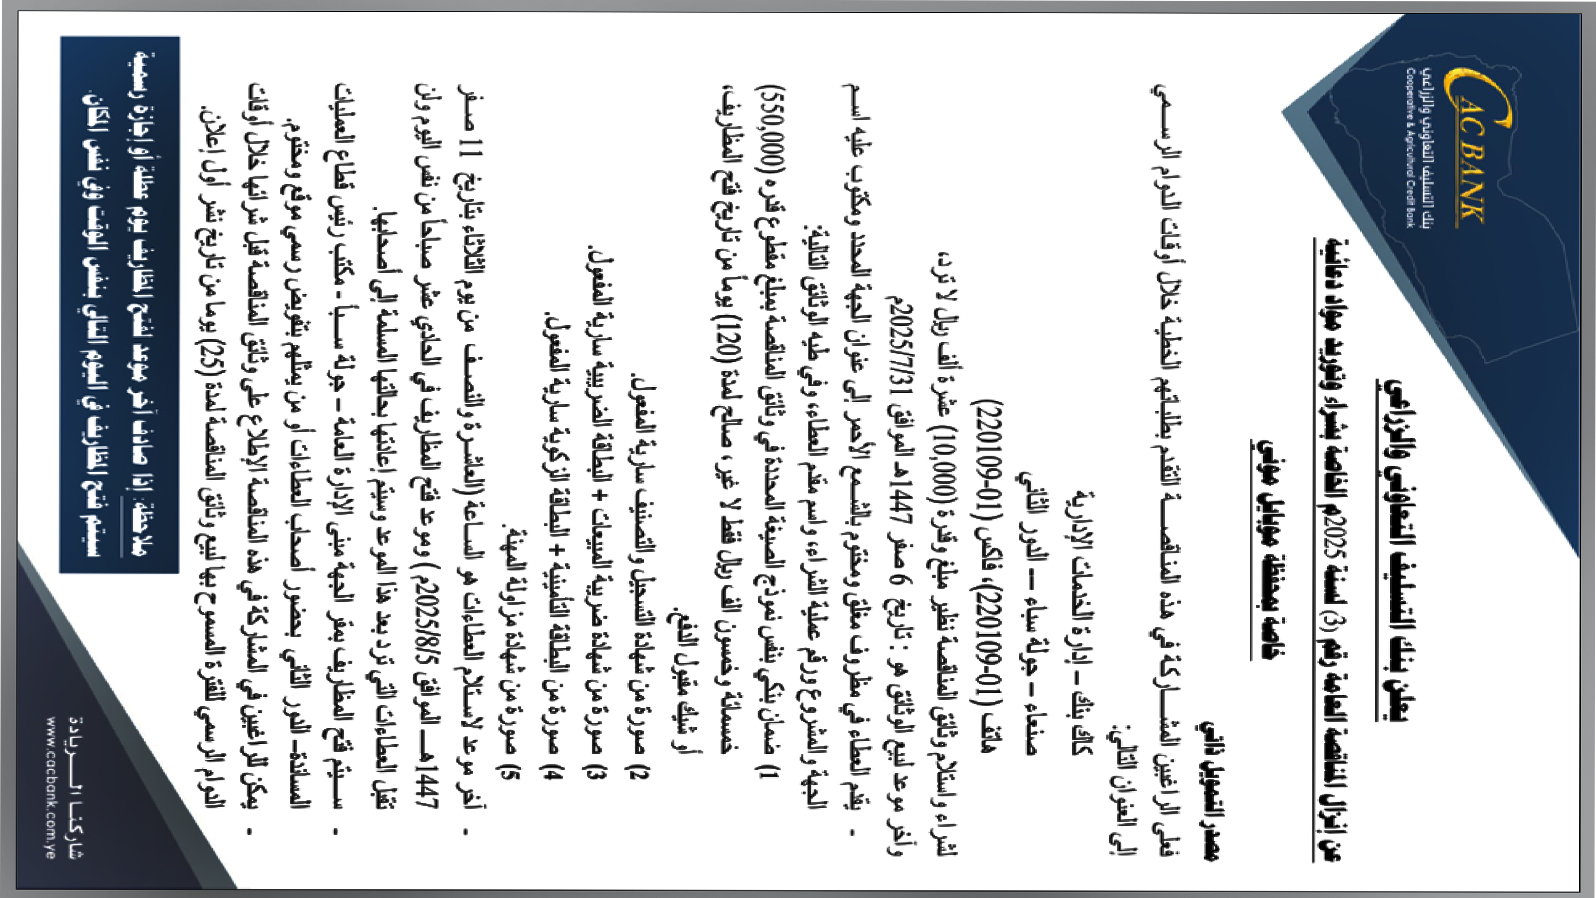 CAC BANK
بنك التسليف التعاوني والزراعي
Cooperative & Agricultural Credit Bank
يعلن بنك التسليف التعاوني والزراعي
عن إنزال المناقصة العامة رقم (3) لسنة 2025م الخاصة بشراء وتوريد مواد دعائية
خاصة بمحفظة موبايل موني
مصدر التمويل ذاتي
فعلى الراغبين المشــاركة في هذه المناقصــة التقدم بطلباتهم الخطية خلال أوقات الدوام الرســمي
إلى العنوان التالي:
كاك بنك – إدارة الخدمات الإدارية
صنعاء – جولة سباء – الدور الثاني
هاتف (01-220109)، فاكس (01-220109)
لشراء واستلام وثائق المناقصة نظير مبلغ وقدرة (10,000) عشرة ألف ريال لا ترد،
وآخر موعد لبيع الوثائق هو : تاريخ 6 صفر 1447هـ الموافق 2025/7/31م
- يقدم العطاء في مظروف مغلق ومختوم بالشـمع الأحمر إلى عنوان الجهة المحدد ومكتوب عليه اسـم
الجهة والمشروع ورقم عملية الشراء، واسم مقدم العطاء، وفي طيه الوثائق التالية:
1) ضمان بنكي بنفس نموذج الصيغة المحددة في وثائق المناقصة بمبلغ مقطوع قدره (550,000)
خمسمائة وخمسون الف ريال فقط لا غير، صالح لمدة (120) يوماً من تاريخ فتح المظاريف،
أو شيك مقبول الدفع.
2) صورة من شهادة التسجيل والتصنيف سارية المفعول.
3) صورة من شهادة ضريبة المبيعات + البطاقة الضريبية سارية المفعول.
4) صورة من البطاقة التأمينية + البطاقة الزكوية سارية المفعول.
5) صورة من شهادة مزاولة المهنة.
- آخر موعد لاسـتلام العطاءات هو السـاعة (العاشـرة والنصـف من يوم الثلاثاء بتاريخ 11 صـفر
1447هــ الموافق 2025/8/5م ) وموعد فتح المظاريف في الحادي عشر صباحاً من نفس اليوم ولن
تقبل العطاءات التي ترد بعد هذا الموعد وسيتم إعادتها بحالتها المسلمة إلى أصحابها.
- ســيتم فتح المظاريف بمقر الجهة مبنى الإدارة العامة – جولة ســبأ - مكتب رئيس قطاع العمليات
المساندة– الدور الثاني بحضور أصحاب العطاءات أو من يمثلهم بتفويض رسمي موقع ومختوم.
- يمكن للراغبين في المشاركة في هذه المناقصة الإطلاع على وثائق المناقصة قبل شرائها خلال أوقات
الدوام الرسمي للفترة المسموح بها لبيع وثائق المناقصة لمدة (25) يوما من تاريخ نشر أول إعلان.
ملاحظة: إذا صادف آخر موعد لفتح المظاريف يوم عطلة أو إجازة رسمية
سيتم فتح المظاريف في اليوم التالي بنفس الوقت وفي نفس المكان.
شاركنـا الــريادة
www.cacbank.com.ye